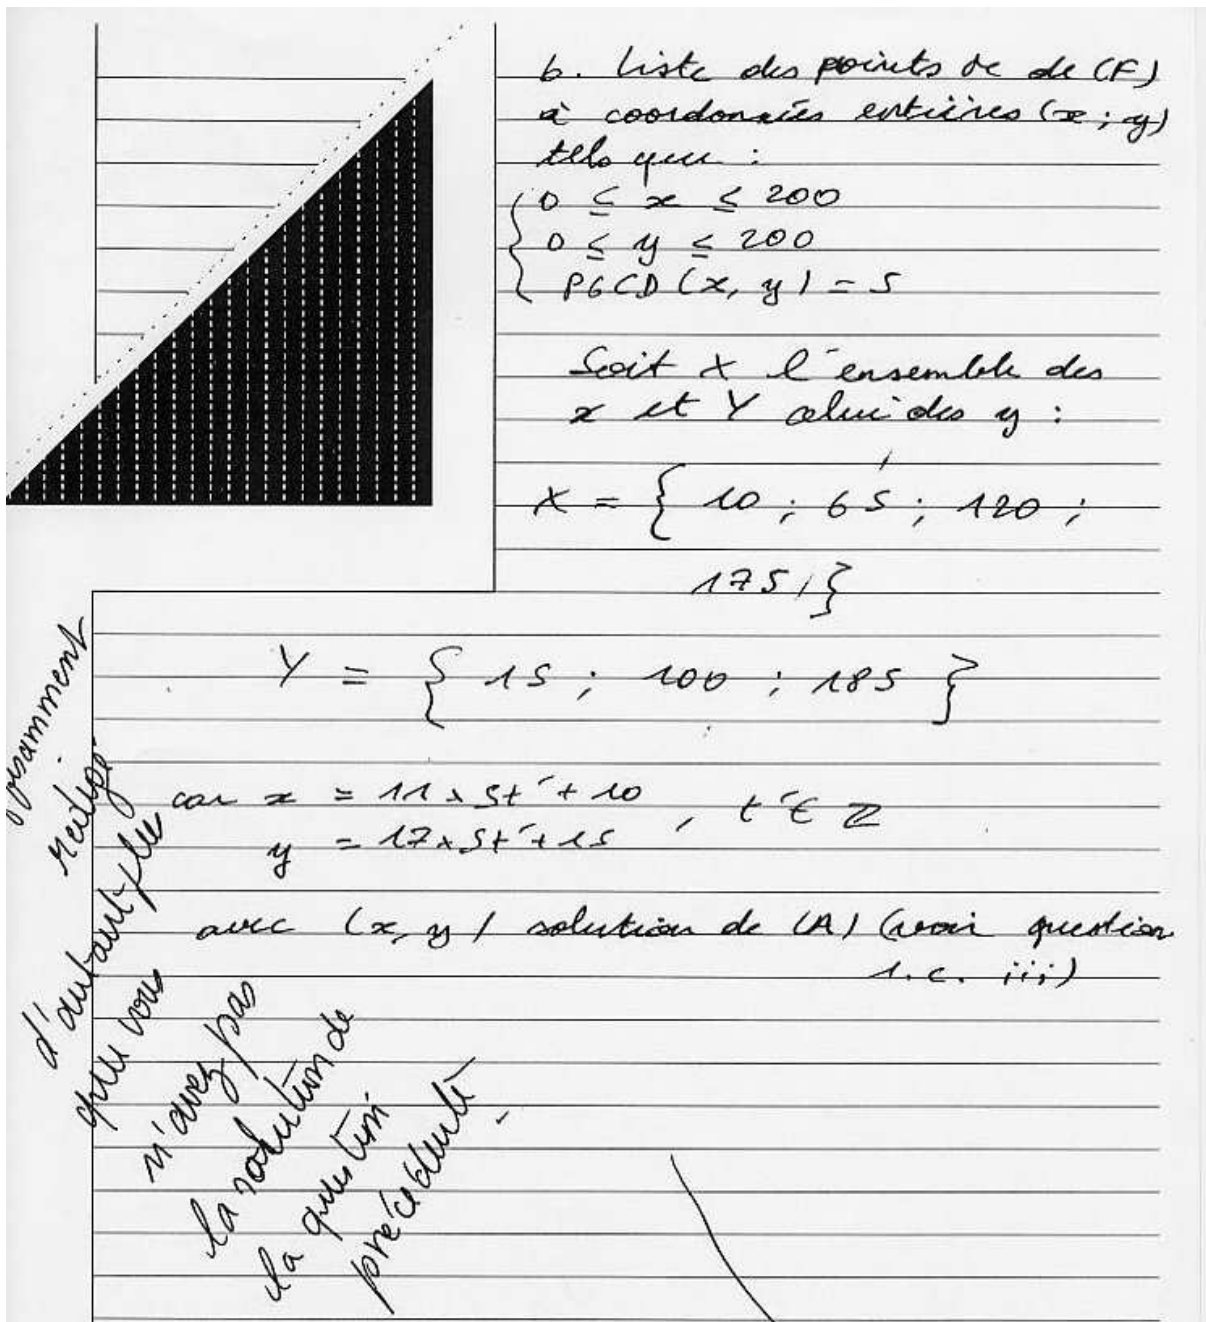 b. Liste des points de de (F)
à coordonnées entières (x ; y)
tels que :
0 ≤ x ≤ 200
0 ≤ y ≤ 200
PGCD (x, y) = 5
Soit X l'ensemble des
x et Y celui des y :
X = { 10 ; 65 ; 120 ;
175 ; }
Y = { 15 ; 100 ; 185 }
car x = 11 x 5t' + 10
y = 17 x 5t' + 15 , t' ∈ Z
avec (x, y) solution de (A) (voir question
1. c. iii)
rédigé
d'autant plus
que vous
n'avez pas
la solution de
la question
précédente